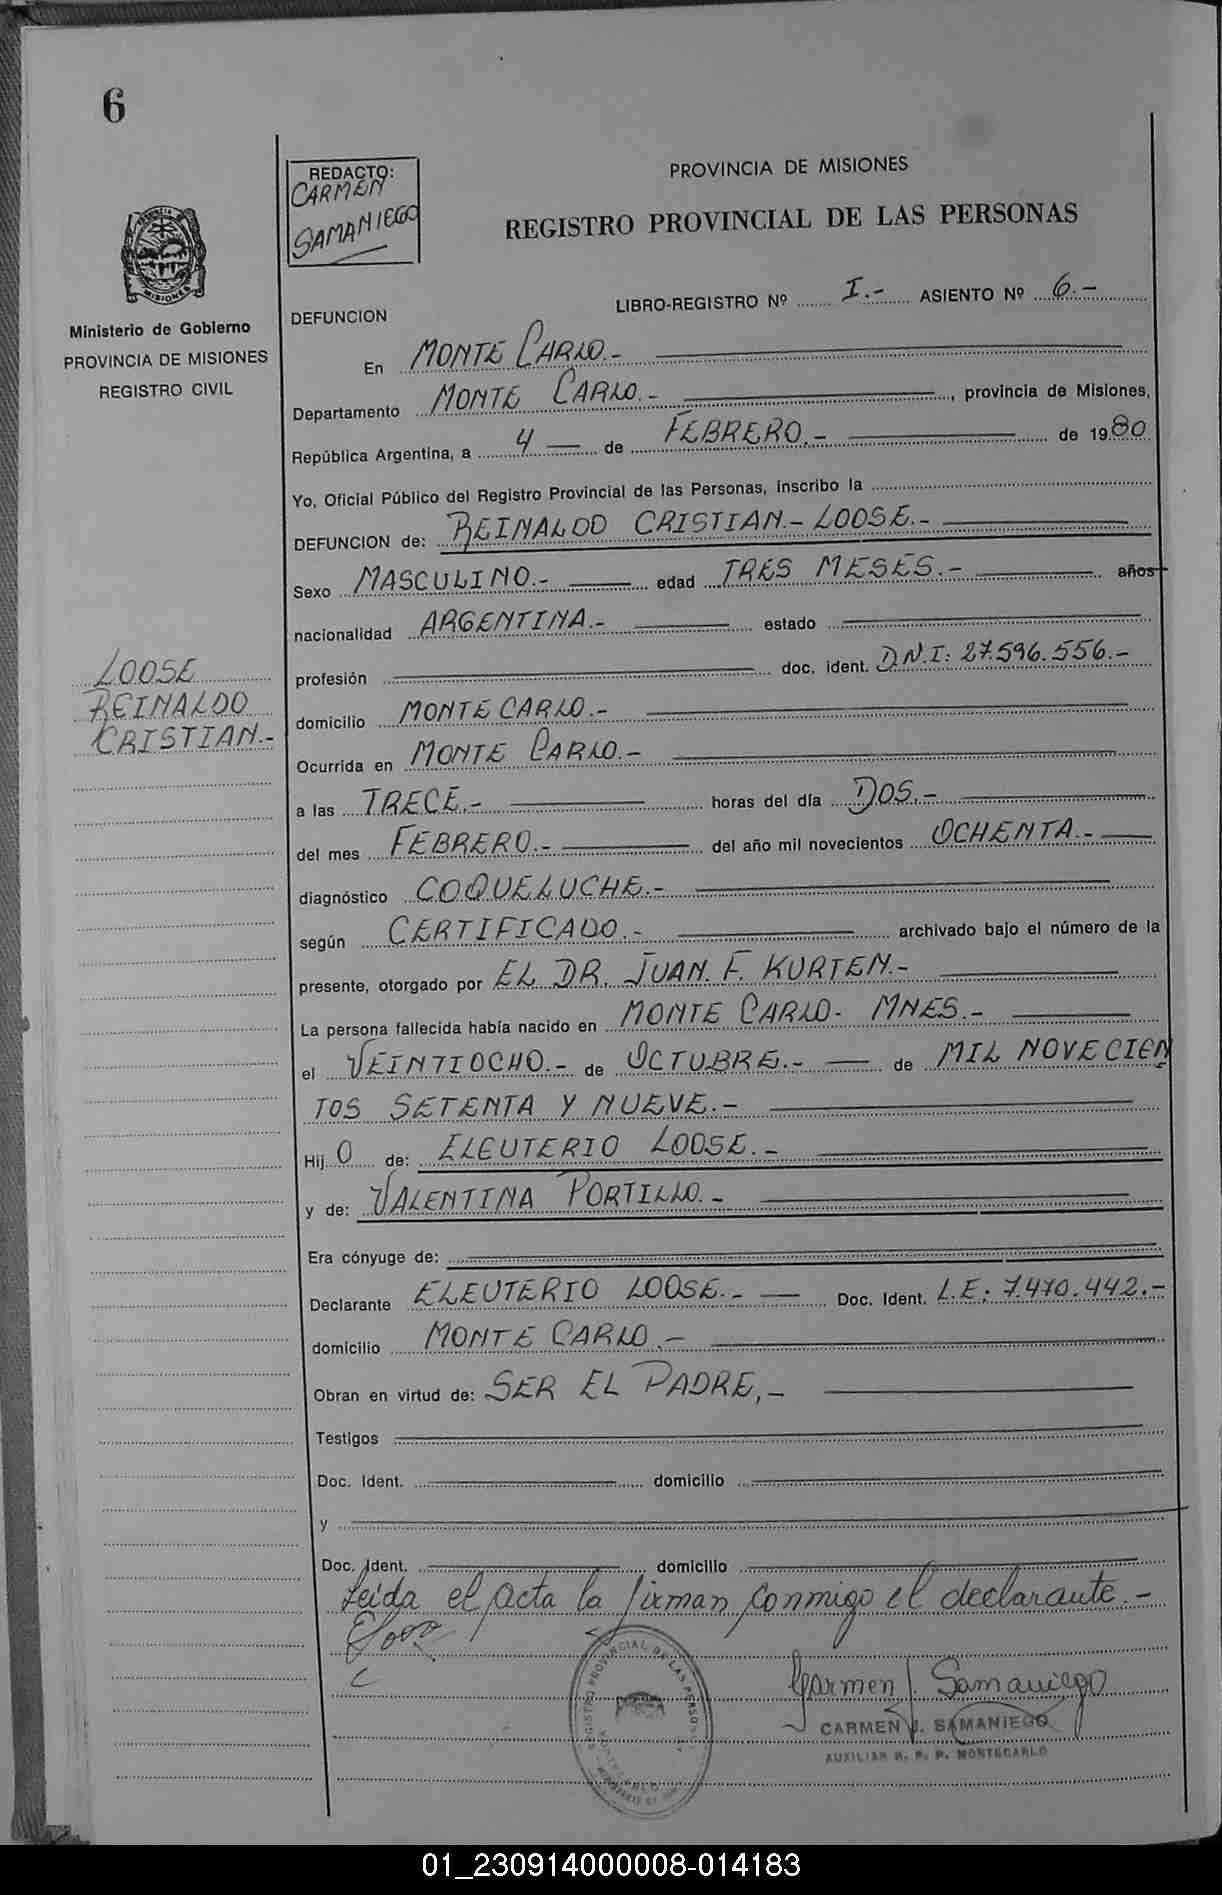 6
REDACTO:
CARMEN
SAMANIEGO
PROVINCIA DE MISIONES
REGISTRO PROVINCIAL DE LAS PERSONAS
MISIONES
Ministerio de Gobierno
PROVINCIA DE MISIONES
REGISTRO CIVIL
LOOSE
REINALDO
CRISTIAN.-
DEFUNCION
LIBRO-REGISTRO Nº I.- ASIENTO Nº 6.-
En MONTE CARLO.-
Departamento MONTE CARLO.- , provincia de Misiones,
República Argentina, a 4 — de FEBRERO.- de 1980
Yo, Oficial Público del Registro Provincial de las Personas, inscribo la
DEFUNCION de: REINALDO CRISTIAN.- LOOSE.-
Sexo MASCULINO.- edad TRES MESES.- años
nacionalidad ARGENTINA.- estado
profesión doc. ident. D.N.I: 27.596.556.-
domicilio MONTE CARLO.-
Ocurrida en MONTE CARLO.-
a las TRECE.- horas del día DOS.-
del mes FEBRERO.- del año mil novecientos OCHENTA.-
diagnóstico COQUELUCHE.-
según CERTIFICADO.- archivado bajo el número de la
presente, otorgado por EL DR. JUAN. F. KURTEN.-
La persona fallecida había nacido en MONTE CARLO- MNES.-
el VEINTIOCHO.- de OCTUBRE.- de MIL NOVECIEN
TOS SETENTA Y NUEVE.-
Hij O de: ELEUTERIO LOOSE.-
y de: VALENTINA PORTILLO.-
Era cónyuge de:
Declarante ELEUTERIO LOOSE.- Doc. Ident. L.E: 7.470.442.-
domicilio MONTE CARLO.-
Obran en virtud de: SER EL PADRE,-
Testigos
Doc. Ident. domicilio
y
Doc. Ident. domicilio
Leida el acta la firman conmigo el declarante.-
Carmen J. Samaniego
CARMEN J. SAMANIEGO
AUXILIAR R. P. P. MONTECARLO
01_230914000008-014183